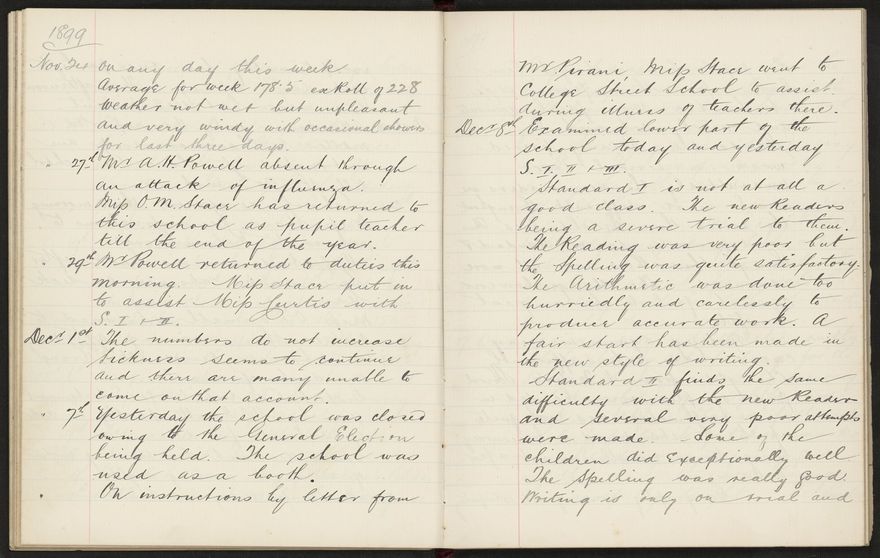 1899
Nov. 24 on any day this week
Average for week 178.5 ex Roll of 228
Weather not wet but unpleasant
and very windy with occasional showers
for last three days.
" 27th Mr A. H. Powell absent through
an attack of influenza.
Miss O. M. Stace has returned to
this school as pupil teacher
till the end of the year.
" 29th Mr Powell returned to duties this
morning. Miss Stace put in
to assist Miss Curtis with
S. I & II.
Decr 1st The numbers do not increase
Sickness seems to continue
and there are many unable to
come on that account.
" 7th Yesterday the school was closed
owing to the General Election
being held. The school was
used as a booth.
On instructions by letter from
Mr. Pirani, Miss Stace went to
College Street School to assist
during illness of teachers there.
Decr 8th Examined lower part of the
school today and yesterday
S. I, II & III.
Standard I is not at all a
good class. The new Readers
being a severe trial to them.
The Reading was very poor but
the Spelling was quite satisfactory.
The Arithmetic was done too
hurriedly and carelessly to
produce accurate work. A
fair start has been made in
the new style of writing.
Standard II finds the same
difficulty with the new Reader
and several very poor attempts
were made. Some of the
children did exceptionally well
The Spelling was really good.
Writing is only on trial and